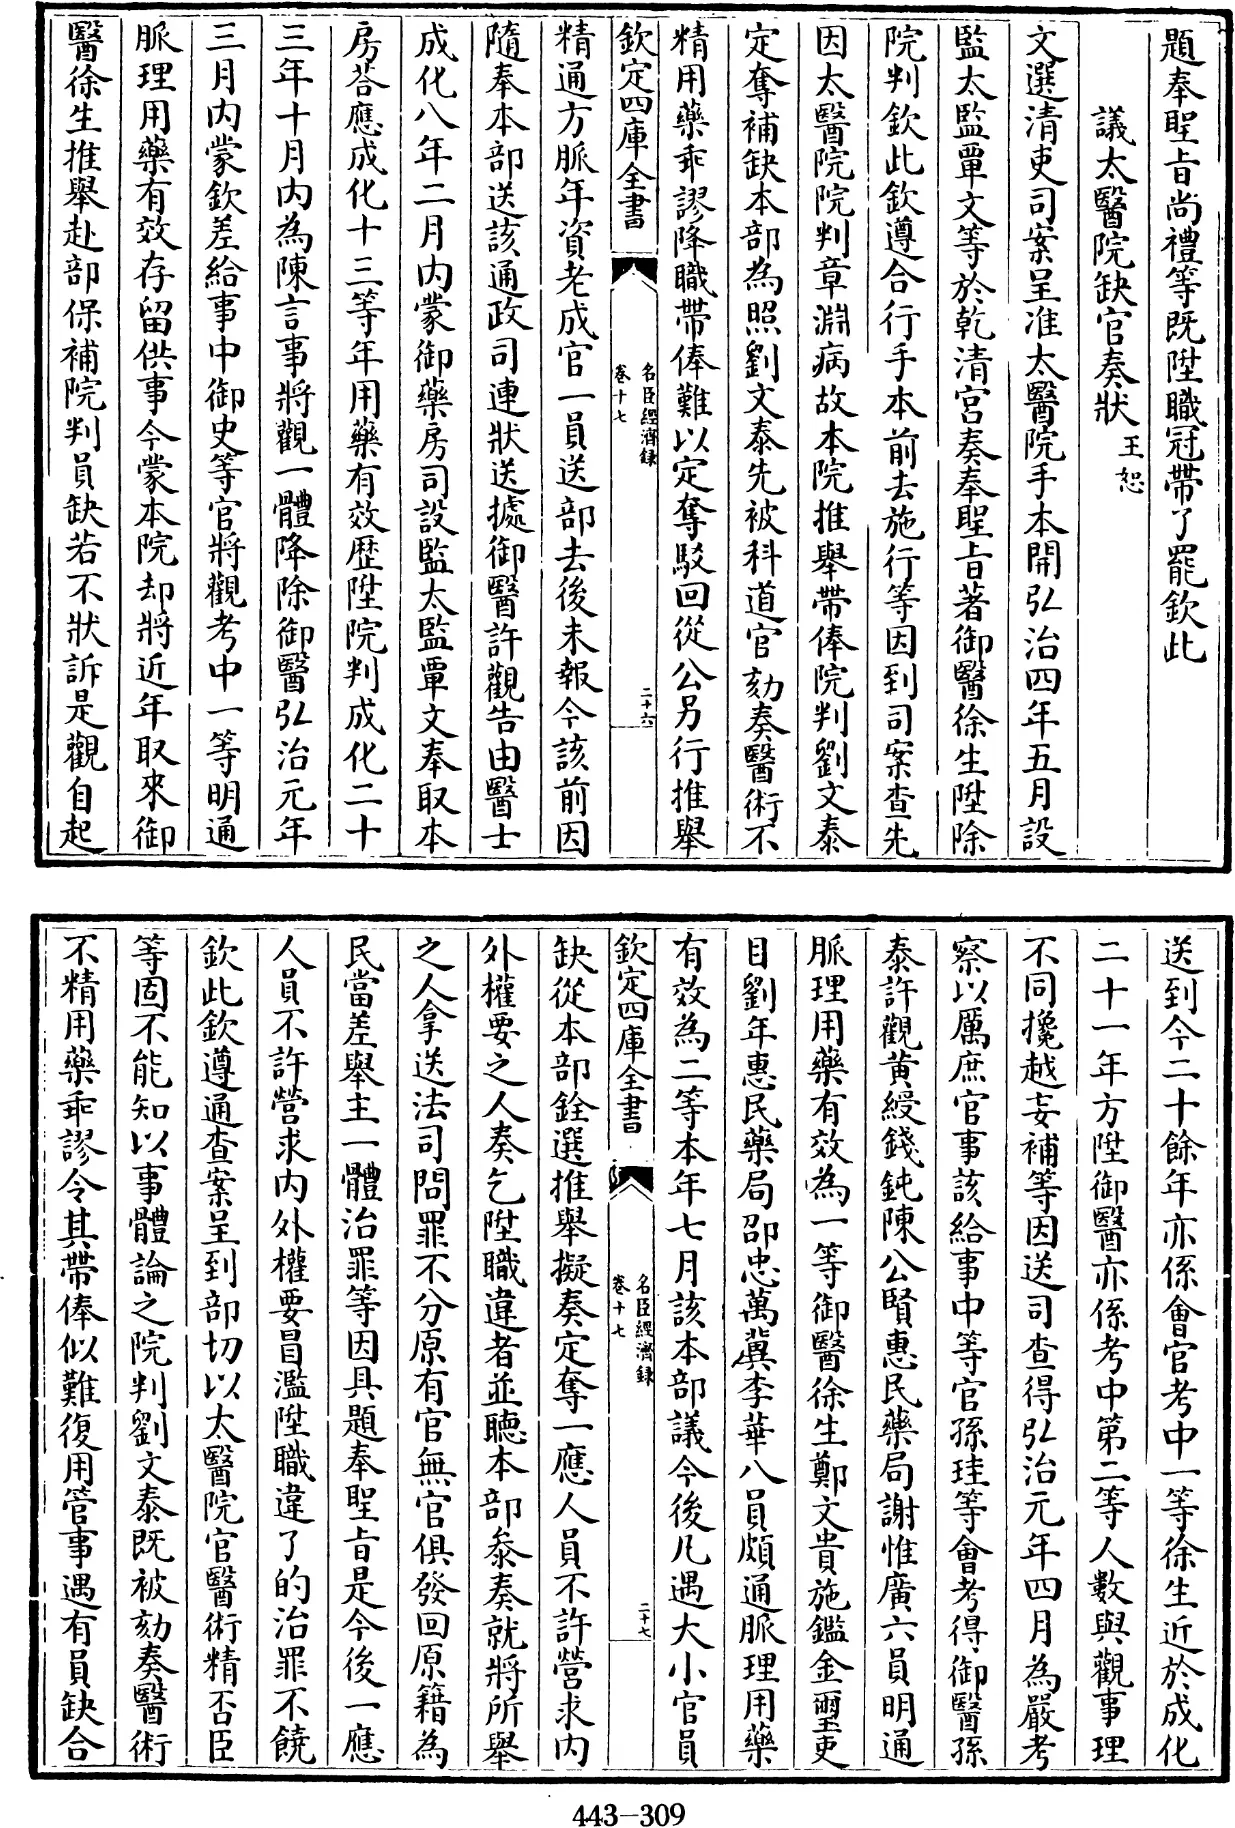 題奉聖旨尚禮等既陞職冠帶了罷欽此
議太醫院缺官奏狀 王恕
文選清吏司案呈准太醫院手本開弘治四年五月設
監太監覃文等於乾清宮奏奉聖旨著御醫徐生陞除
院判欽此欽遵合行手本前去施行等因到司案查先
因太醫院院判章淵病故本院推舉帶俸院判劉文泰
定奪補缺本部為照劉文泰先被科道官劾奏醫術不
精用藥乖謬降職帶俸難以定奪駁回從公另行推舉
欽定四庫全書 名臣經濟錄 卷十七 二十六
精通方脈年資老成官一員送部去後未報今該前因
隨奉本部送該通政司連狀送據御醫許觀告由醫士
成化八年二月內蒙御藥房司設監太監覃文奉取本
房荅應成化十三等年用藥有效歷陞院判成化二十
三年十月內為陳言事將觀一體降除御醫弘治元年
三月內蒙欽差給事中御史等官將觀考中一等明通
脈理用藥有效存留供事今蒙本院却將近年取來御
醫徐生推舉赴部保補院判員缺若不狀訴是觀自起
送到今二十餘年亦係會官考中一等徐生近於成化
二十一年方陞御醫亦係考中第二等人數與觀事理
不同攙越妄補等因送司查得弘治元年四月為嚴考
察以厲庶官事該給事中等官孫珪等會考得御醫孫
泰許觀黃綬錢鈍陳公賢惠民藥局謝惟廣六員明通
脈理用藥有效為一等御醫徐生鄭文貴施鑑金璽吏
目劉年惠民藥局邵忠萬兾李華八員頗通脈理用藥
有效為二等本年七月該本部議今後凡遇大小官員
欽定四庫全書 名臣經濟錄 卷十七 二十七
缺從本部銓選推舉擬奏定奪一應人員不許營求內
外權要之人奏乞陞職違者並聽本部叅奏就將所舉
之人拿送法司問罪不分原有官無官俱發回原籍為
民當差舉主一體治罪等因具題奉聖旨是今後一應
人員不許營求內外權要冒濫陞職違了的治罪不饒
欽此欽遵通查案呈到部切以太醫院官醫術精否臣
等固不能知以事體論之院判劉文泰既被劾奏醫術
不精用藥乖謬令其帶俸似難復用管事遇有員缺合
443-309